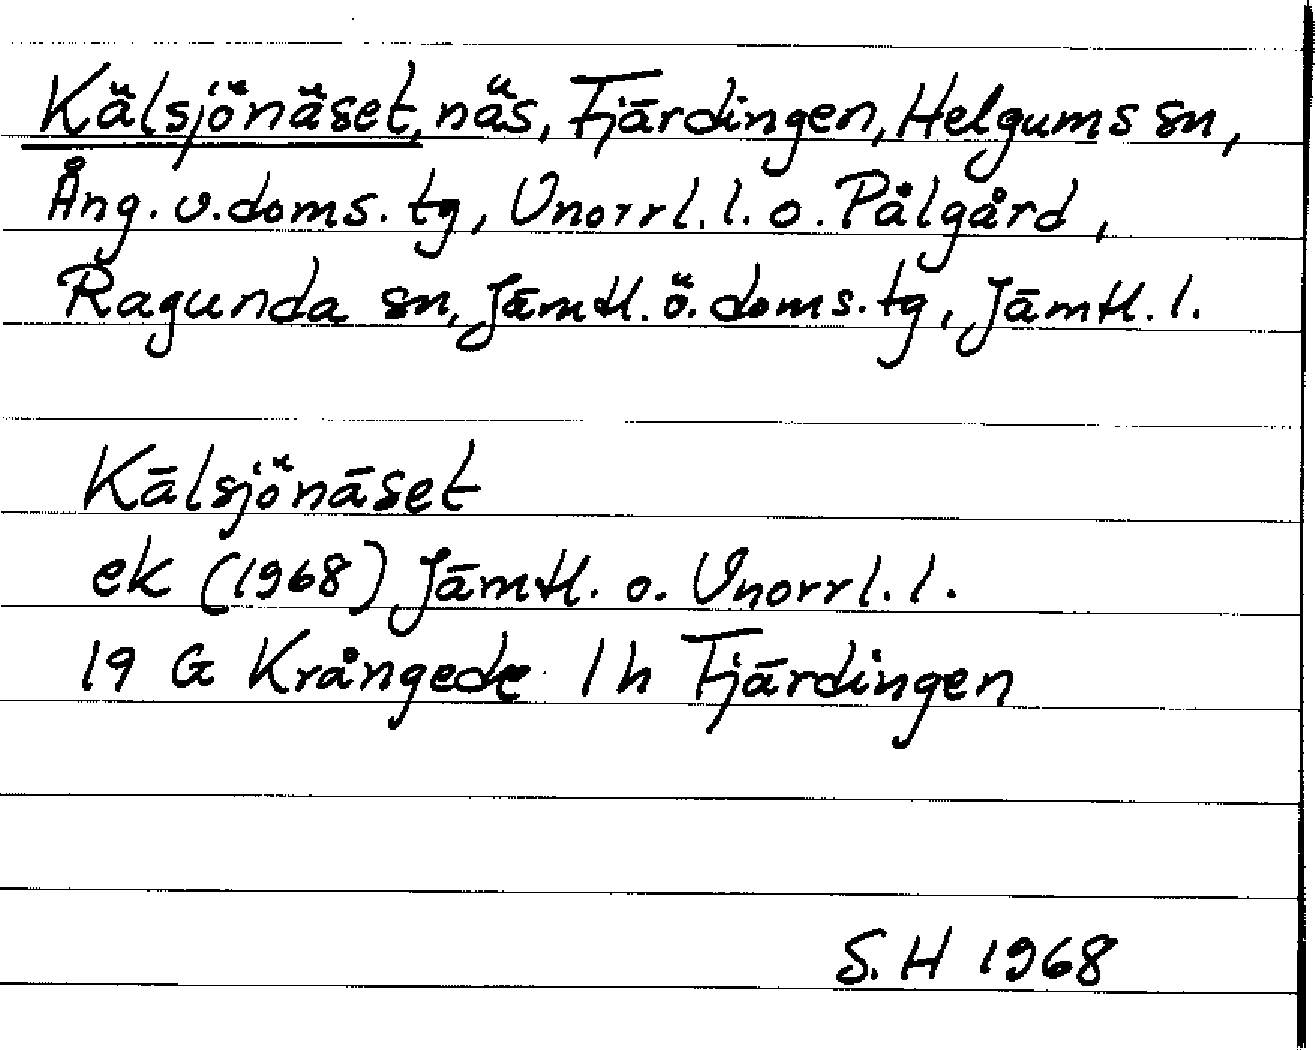 Kälsjönäset, näs, Fjärdingen, Helgums sn,
Ång. v. doms. tg, Vnorrl. l. o. Pålgård,
Ragunda sn, Jämtl. ö. doms. tg, Jämtl. l.
Kälsjönäset
ek (1968) Jämtl. o. Vnorrl. l.
19 G Krångede 1 h Fjärdingen
S. H 1968